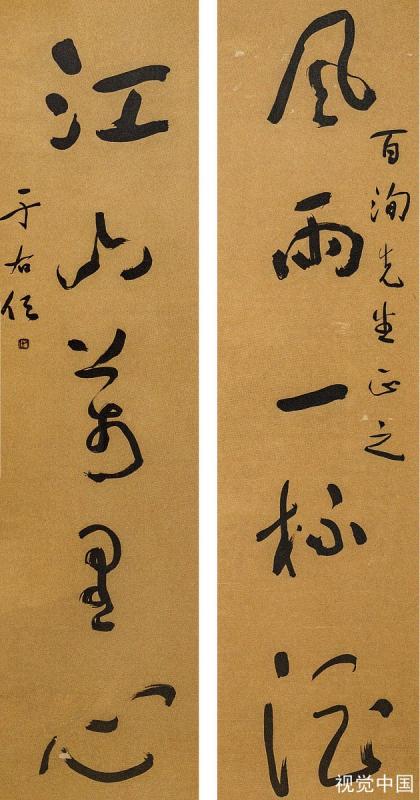 风雨一杯酒
百洵先生正之
江山万里心
于右任
视觉中国